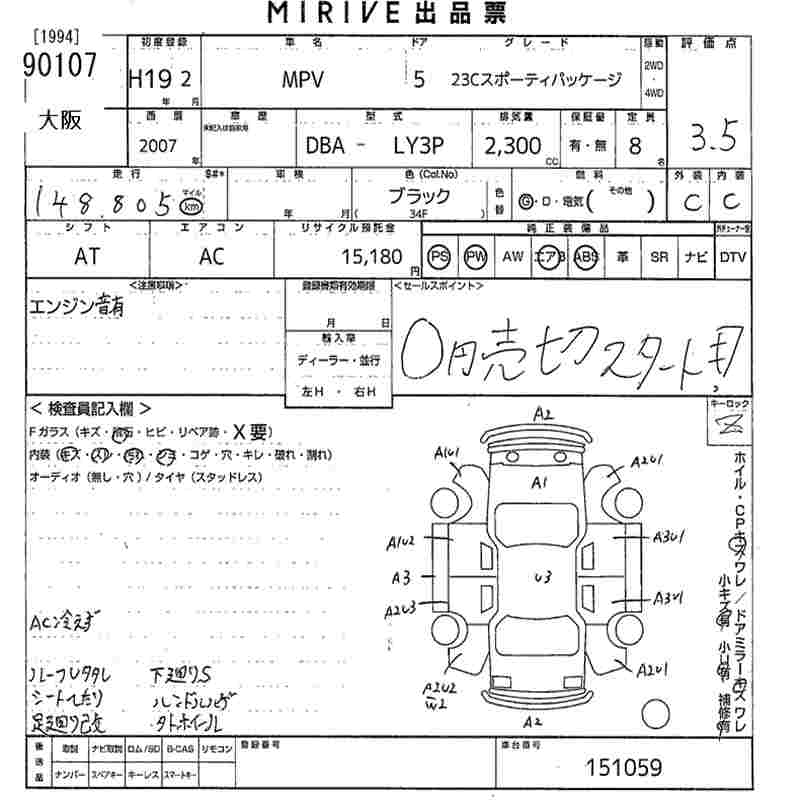 MIRIVE 出品票
[1994]
90107
大阪
初度登録 車名 ドア グレード 駆動 評価点
H19 2 年 月 MPV 5 23Cスポーティパッケージ 2WD ・ 4WD
西暦 車歴 型式 排気量 保証書 定員
2007 年 DBA - LY3P 2,300 CC 有・無 8 名 3.5
走行 車検 色(Col.No) 燃料 外装 内装
148.805 マイル km 年 月 ブラック ( 34F ) 色替 G・D・電気( その他 ) C C
シフト エアコン リサイクル預託金 純正装備品
AT AC 15,180 円 PS PW AW エアB ABS 革 SR ナビ DTV
<注意事項> 登録書類有効期限 <セールスポイント>
エンジン音有
月 日
輸入車
ディーラー・並行
左H ・ 右H
0円売切スタート可
<検査員記入欄> キーロック
Fガラス(キズ・飛石・ヒビ・リペア跡・X要)
内装(キズ・スレ・汚れ・シミ・コゲ・穴・キレ・破れ・割れ)
オーディオ(無し・穴)/タイヤ(スタッドレス)
A2
A1U1 A2U1
A1
A1U2 A3U1
A3 U3
A2U3 A3U1
A2U2 W2 A2U1
A2
ホイル・CPキズワレ/ドアミラーキズワレ
小キズ有 小U有 補修有
AC冷えず
ルーフレタタレ 下廻りS
シートヘタリ ハンドルハゲ
足廻り改 外ホイール
後送品 取説 ナビ取説 ロム/SD B-CAS リモコン 登録番号 車台番号
ナンバー スペアキー キーレス スマートキー 151059